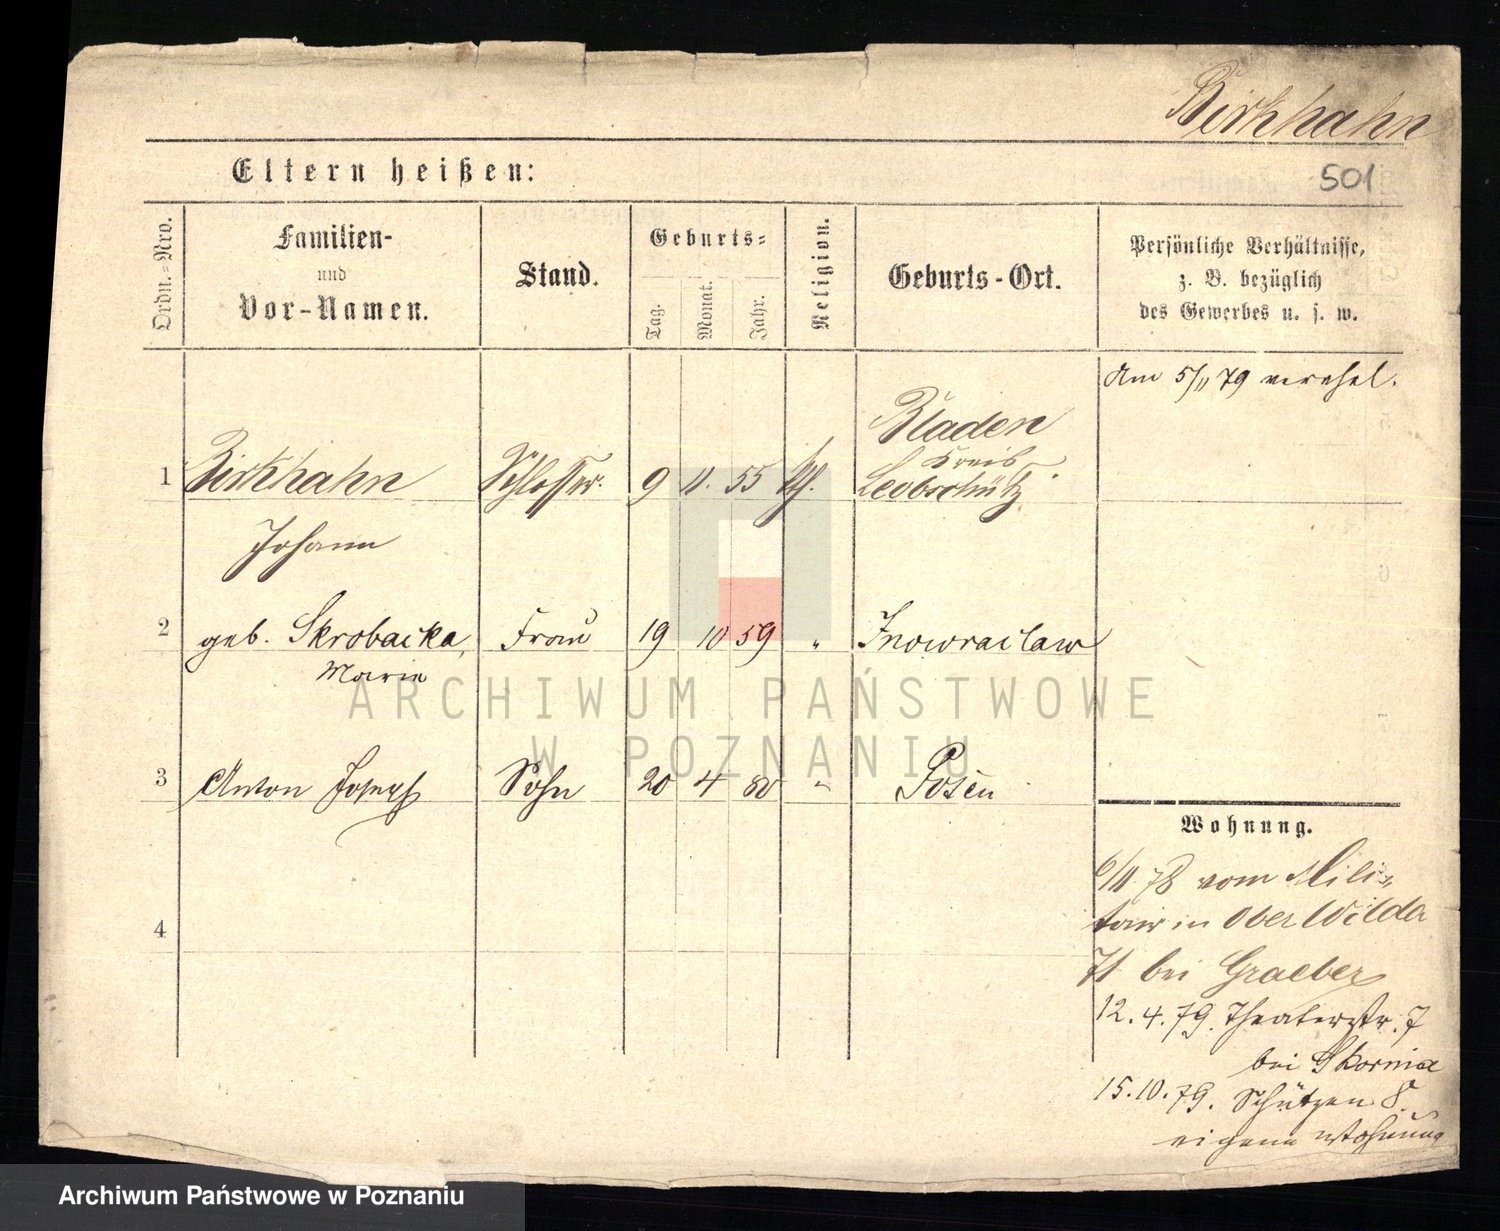 Birkhahn
Eltern heißen:
501
Ordn.=Nro.
Familien-
und
Vor-Namen.
Stand.
Geburts=
Tag.
Monat.
Jahr.
Religion.
Geburts-Ort.
Persönliche Verhältnisse,
z. B. bezüglich
des Gewerbes u. s. w.
Am 5/11 79 verehel.
1 Birkhahn Schlosser. 9 11. 55 kth. Bladen
Kreis
Leobschütz
Johann
2 geb. Skrobacka, Frau 19 10 59 " Inowraclaw
Marie
3 Anton Joseph Sohn 20 4 80 " Posen
4
Wohnung.
6/11 78 vom Mili-
tair in Ober Wilda
71 bei Graeber
12.4.79. Theaterstr. 7
bei Skornia
15.10.79. Schützen 8.
eigene Wohnung
ARCHIWUM PAŃSTWOWE
W POZNANIU
Archiwum Państwowe w Poznaniu